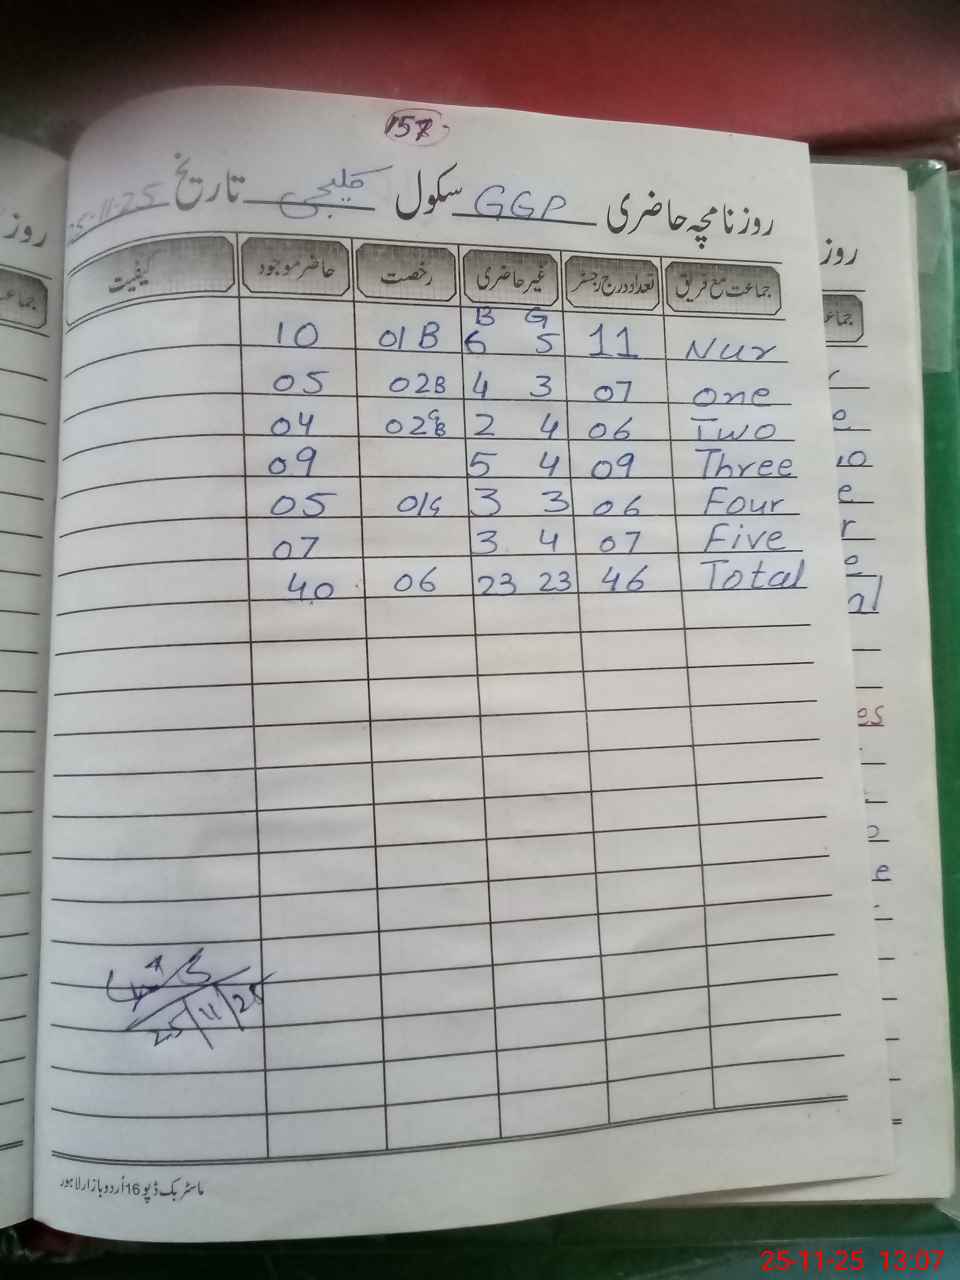 157
روزنامچہ حاضری GGP سکول کلیجی تاریخ 25-11-25
جماعت مع فریق تعداد درج رجسٹر غیر حاضری رخصت حاضر موجود کیفیت
B G
Nur 11 6 5 01 B 10
One 07 4 3 02B 05
Two 06 2 4 02 G B 04
Three 09 5 4 09
Four 06 3 3 01G 05
Five 07 3 4 07
Total 46 23 23 06 40
25/11/25
ماسٹر بک ڈپو 16 اُردو بازار لاہور
روز
جماعت
روز
جما
25-11-25 13:07